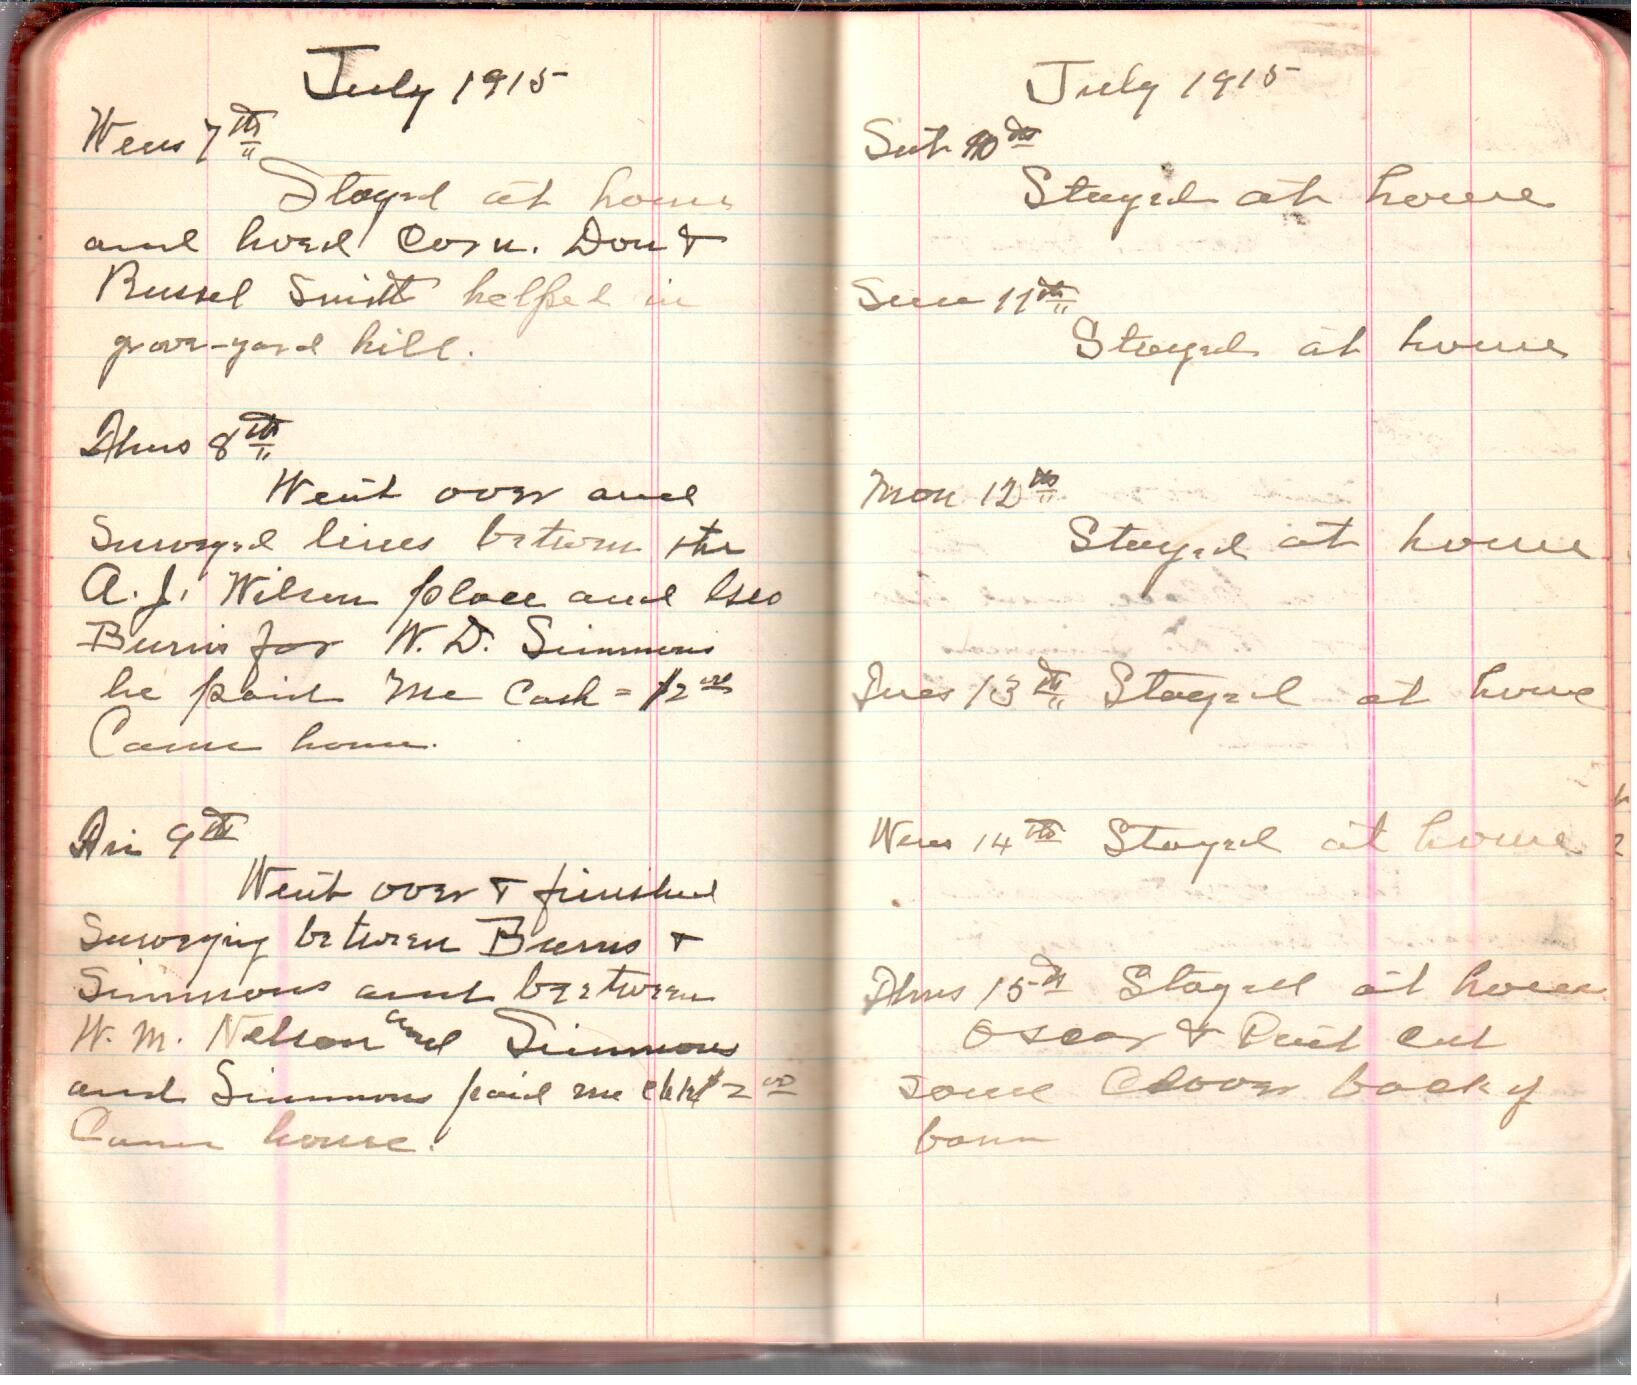 July 1915
Wens 7th
Stayed at home
and hoed Corn. Don &
Russel Smith helped in
grave-yard hill.
Thus 8th
Went over and
Surveyed lines between the
A. J. Wilson place and Geo
Burns for W. D. Simmons
he paid me Cash = $2 00
Came home.
Fri 9th
Went over & finished
Surveying between Burns &
Simmons and beetween
W. M. Nelson and Simmons
and Simmons paid me chk $2 00
Came home.
July 1915
Sat 10th
Stayed at home
Sun 11th
Stayed at home
Mon 12th
Stayed at home
Tues 13th Stayed at home
Wens 14th Stayed at home
Thus 15th Stayed at home
Oscar & cut
some Clover back of
barn